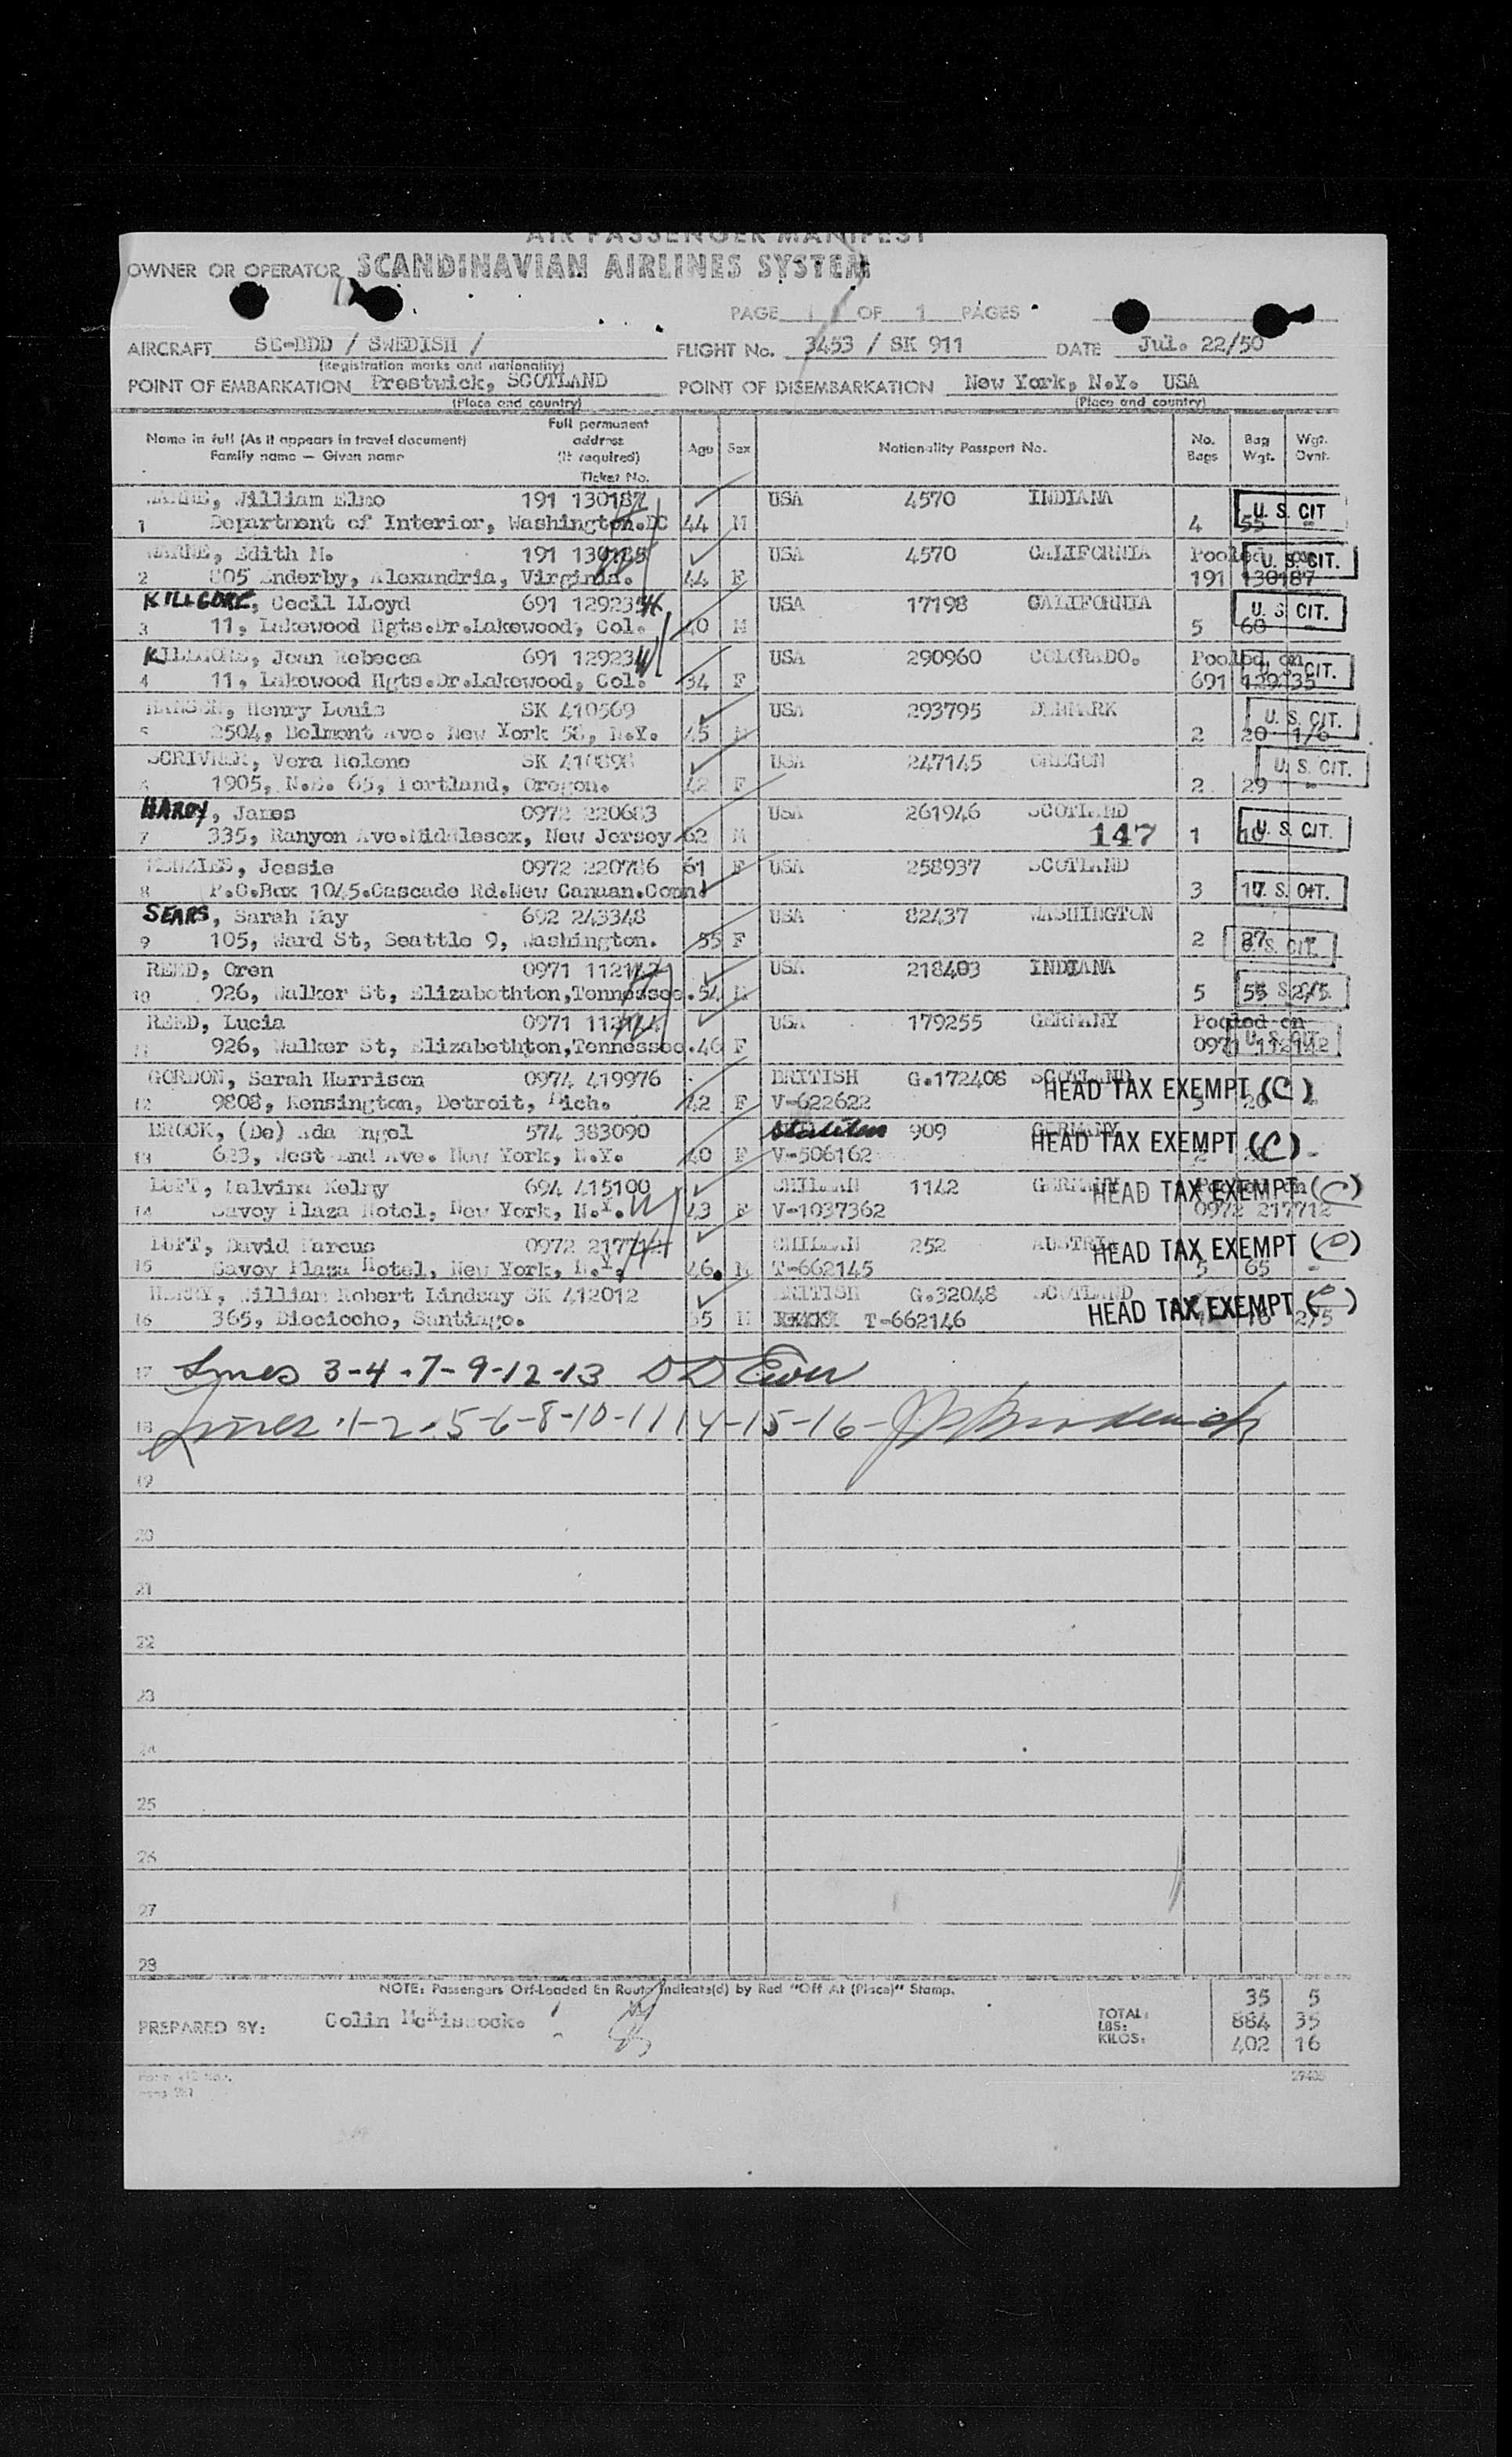 AIR PASSENGER MANIFEST
OWNER OR OPERATOR SCANDINAVIAN AIRLINES SYSTEM
PAGE 1 OF 1 PAGES
AIRCRAFT SE-BDD / SWEDISH / FLIGHT No. 3453 / SK 911 DATE Jul. 22/50
(Registration marks and nationality)
POINT OF EMBARKATION Prestwick, SCOTLAND POINT OF DISEMBARKATION New York, N.Y. USA
(Place and country) (Place and country)
Name in full (As it appears in travel document) Full permanent address (If required) Age Sex Nationality Passport No. No. Bags Bag Wgt. Wgt. Ovnt.
Family name — Given name Ticket No.
William Elmo 191 130187 USA 4570 INDIANA U. S. CIT
1 Department of Interior, Washington.DC 44 M 4 55 -
WARNE, Edith M. 191 130185 USA 4570 CALIFORNIA Pooled on U. S. CIT.
2 805 Enderby, Alexandria, Virginia. 44 F 191 130187
KILLGORE, Cecil LLoyd 691 129235 USA 17198 CALIFORNIA U. S. CIT.
3 11, Lakewood Hgts.Dr.Lakewood, Col. 40 M 5 60 -
KILLGORE, Jean Rebecca 691 129234 USA 290960 COLORADO. Pooled on U. S. CIT.
4 11, Lakewood Hgts.Dr.Lakewood, Col. 34 F 691 129235
HANSEN, Henry Louis SK 410569 USA 293795 DENMARK U. S. CIT.
5 2504, Belmont Ave. New York 58, N.Y. 45 M 2 20 1/6
SCRIVNER, Vera Helene SK 410898 USA 247145 OREGON U. S. CIT.
6 1905, N.E. 65, Portland, Oregon. 42 F 2 29 -
HARDY, James 0972 220683 USA 261946 SCOTLAND
7 335, Runyon Ave.Middlesex, New Jersey 62 M 147 1 10 U. S. CIT.
MENZIES, Jessie 0972 220786 61 F USA 258937 SCOTLAND
8 P.O.Box 1045.Cascade Rd.New Canaan.Conn. 3 17 U. S. CIT.
SEARS, Sarah May 692 243348 USA 82437 WASHINGTON
9 105, Ward St, Seattle 9, Washington. 55 F 2 27 U. S. CIT.
REED, Oren 0971 112142 USA 218403 INDIANA
10 926, Walker St, Elizabethton,Tennessee. 54 M 5 55 2/5 U. S. CIT.
REED, Lucia 0971 112144 USA 179255 GERMANY Pooled on
11 926, Walker St, Elizabethton,Tennessee. 46 F 0971 112142 U. S. CIT.
GORDON, Sarah Harrison 0974 419976 BRITISH G.172408 SCOTLAND HEAD TAX EXEMPT (C)
12 9808, Kensington, Detroit, Mich. 42 F V-622622 3 20 -
BROOK, (De) Ada Engel 574 383090 Stateless 909 GERMANY HEAD TAX EXEMPT (C)
13 633, West End Ave. New York, N.Y. 40 F V-506162 2 -
LUFT, Malvina Kelmy 694 415100 CHILEAN 1142 GERMANY Pooled on HEAD TAX EXEMPT (C)
14 Savoy Plaza Hotel, New York, N.Y. 43 F V-1037362 0972 217712
LUFT, David Marcus 0972 217712 CHILEAN 252 AUSTRIA HEAD TAX EXEMPT (C)
15 Savoy Plaza Hotel, New York, N.Y. 46. M T-662145 5 65 -
HENRY, William Robert Lindsay SK 412012 BRITISH G.32048 SCOTLAND HEAD TAX EXEMPT (C)
16 365, Dieciocho, Santiago. 55 M XXXXX T-662146 1 18 2/5
17 Lines 3-4-7-9-12-13
18 Lines 1-2-5-6-8-10-11 14-15-16-
19
20
21
22
23
24
25
26
27
28
NOTE: Passengers Off-Loaded En Route Indicate(d) by Red "Off At (Place)" Stamp.
35 5
PREPARED BY: Colin McKissock. TOTAL:
LBS: 884 35
KILOS: 402 16